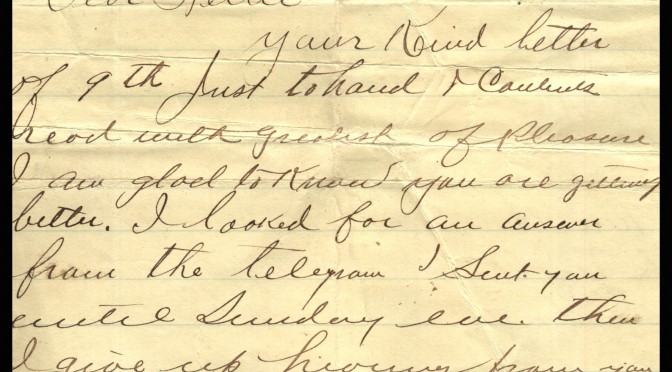 Dear
your Kind letter
of 9th Just to hand & Contents
read with greatest of pleasure
I am glad to Know you are getting
better. I looked for an answer
from the telegram I Sent you
until Sunday eve. then
I give up from you